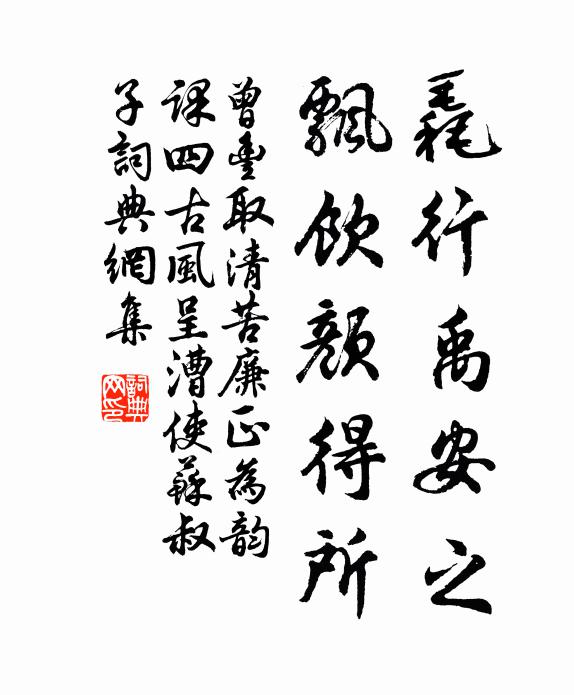 毳行禹安之
飄飲顏得所
曾豐取清苦廉正為韵
課四古風呈漕使蘇叔
子詞典網集
詞典網印